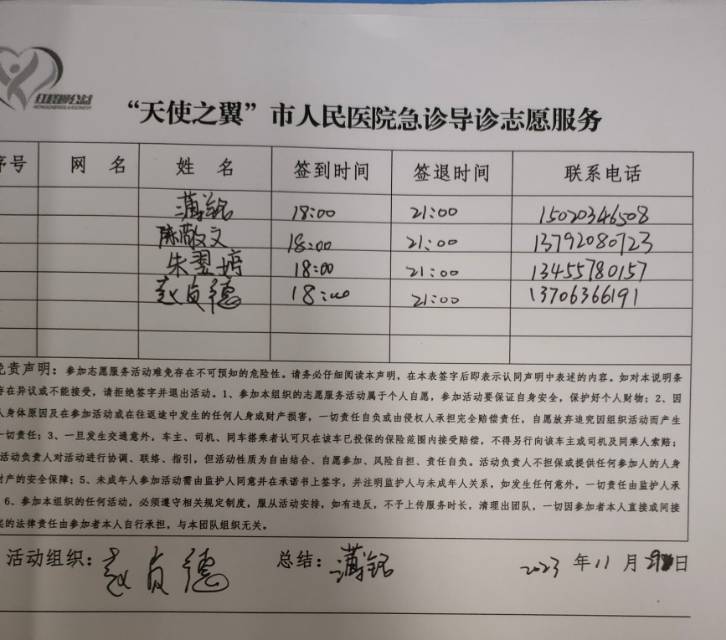 “天使之翼”市人民医院急诊导诊志愿服务
序号 网 名 姓 名 签到时间 签退时间 联系电话
18:00 21:00 15020346508
陈敬文 18:00 21:00 13792080723
朱翌婷 18:00 21:00 13455780157
赵贞德 18:00 21:00 13706366191
免责声明：参加志愿服务活动难免存在不可预知的危险性。请务必仔细阅读本声明，在本表签字后即表示认同声明中表述的内容。如对本说明条
存在异议或不能接受，请拒绝签字并退出活动。1、参加本组织的志愿服务活动属于个人自愿，参加活动要保证自身安全，保护好个人财物；2、因
人身体原因及在参加活动或在往返途中发生的任何人身或财产损害，一切责任自负或由侵权人承担完全赔偿责任，自愿放弃追究因组织活动而产生
一切责任；3、一旦发生交通意外，车主、司机、同车搭乘者认可只在该车已投保的保险范围内接受赔偿，不得另行向该车主或司机及同乘人索赔；
活动负责人对活动进行协调、联络、指引，但活动性质为自由结合、自愿参加、风险自担、责任自负。活动负责人不担保或提供任何参加人的人身
财产的安全保障；5、未成年人参加活动需由监护人同意并在承诺书上签字，并注明监护人与未成年人关系，如发生任何意外，一切责任由监护人承
6、参加本组织的任何活动，必须遵守相关规定制度，服从活动安排，如有违反，不予上传服务时长，清理出团队，一切因参加者本人直接或间接
起的法律责任由参加者本人自行承担，与本团队组织无关。
活动组织：赵贞德 总结： 2023 年 11 月 日